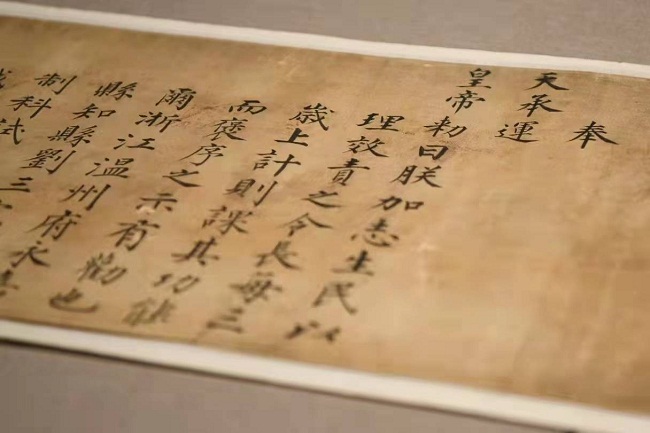 奉
天承運
皇帝勑曰朕加志生民以
理效責之令長每三
歲上計則課其功能
而褒序之示有勸也
爾浙江溫州府永嘉
縣知縣劉三
制科試